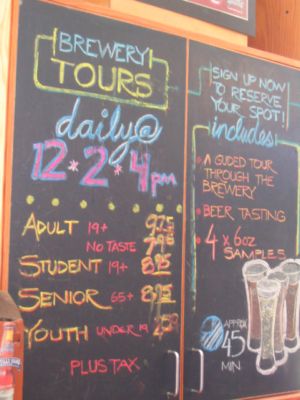 BREWERY
TOURS
daily@
12*2*4pm
ADULT 19+ 9.75
NO TASTE 7.95
STUDENT 19+ 8.95
SENIOR 65+ 8.95
YOUTH UNDER 19
PLUS TAX
SIGN UP NOW
TO RESERVE
YOUR SPOT!
includes:
• A GUIDED TOUR
THROUGH THE
BREWERY
• BEER TASTING
• 4 x 6oz
SAMPLES
APPROX
45
MIN